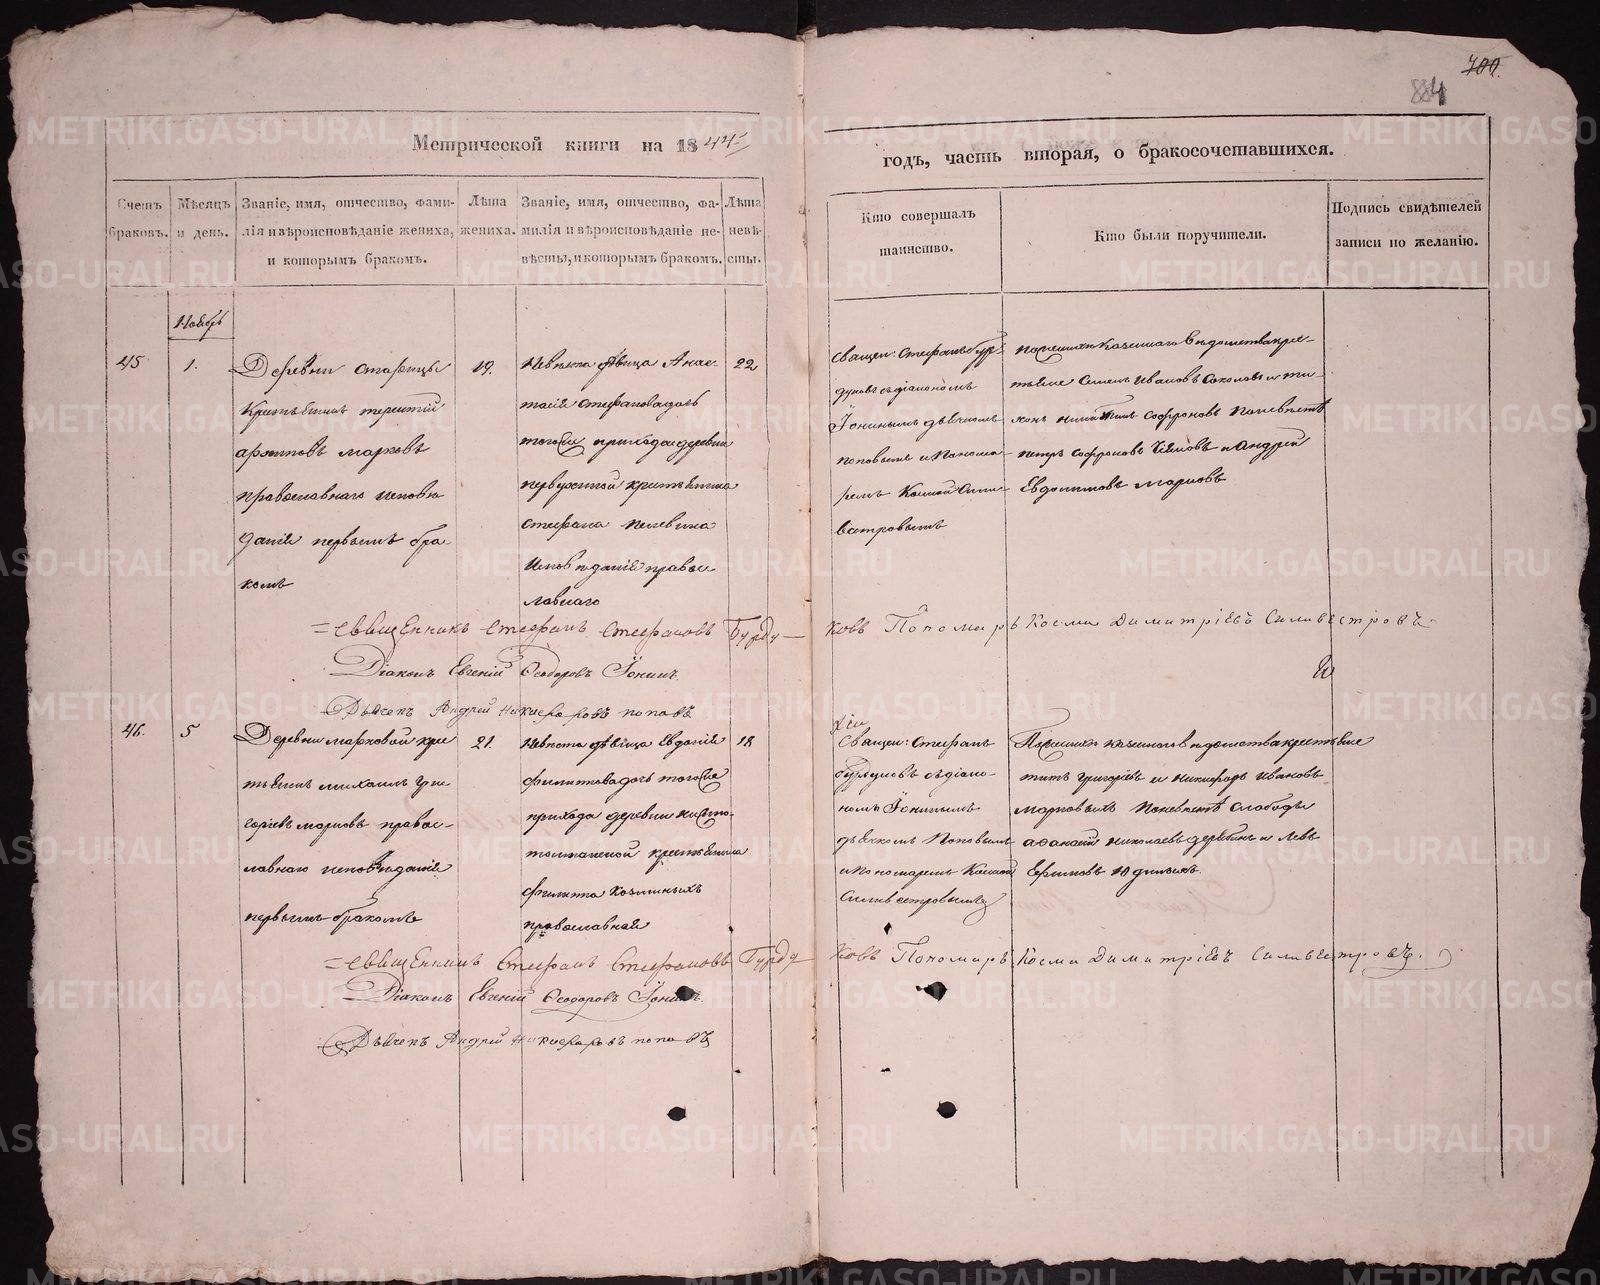 700.
884
Метрической книги на 1844
годъ, часть вторая, о бракосочетавшихся.
Счетъ браковъ.
Мѣсяцъ и день.
Званіе, имя, отчество, фами-
лія и вѣроисповѣданіе жениха,
и которымъ бракомъ.
Лѣта
жениха.
Званіе, имя, отчество, фа-
милія и вѣроисповѣданіе не-
вѣсты, и которымъ бракомъ.
Лѣта
невѣ-
сты.
Кто совершалъ
таинство.
Кто были поручители.
Подпись свидѣтелей
записи по желанію.
Ноябрь
45
1.
Деревни Старицы
Крестьянинъ терентій
архиповъ марковъ
православнаго исповѣ
данія первымъ бра-
комъ
19.
Невѣста дѣвица Анас-
тасія Стефановадочь
тогоже прихода деревни
первухиной крестьянина
Стефана Пелевина
исповѣданія правос
лавнаго
22
Священ: Стефанъ бур-
дуковъ съдіакономъ
Іонинымъ дьячкомъ
поповымъ и Понома-
ремъ Космой Сили-
вестровымъ
тьяне Семенъ Ивановъ Соколовъ и ти-
Софроновъ Поневѣстѣ
петръ Софроновъ и Андрей
Евдокимовъ Марковъ
=священникъ Стефанъ Стефановъ Бурду-
ковъ Пономарь Косма Димитріевъ Силивестровъ.
Діаконъ Евгеній Ѳеодоровъ Іонинъ.
Дьячекъ Андрей Никифоровъ поповъ
46.
5
Деревни марковой крес
тьянинъ михаилъ гри
горіевъ марковъ правос-
лавнаго исповѣданія
первымъ бракомъ
21.
Невѣста дѣвица Евдокія
филиповадочь тогоже
прихода деревни
крестьянина
филипа Козминыхъ
православной
18
Священ: Стефанъ
бурдуковъ съдіако-
номъ Іонинымъ
дьячкомъ Поповымъ
и Пономаремъ Космой
Силивестровымъ
титъ григорьевъ и никифоръ Ивановъ
марковыхъ Поневѣстѣ Слободы
аѳанасій николаевъ и Левъ
Ефимовъ Юдиныхъ.
=священникъ Стефанъ Стефановъ Бурду
ковъ Пономарь Косма Димитріевъ Силивестровъ.
Діаконъ Евгеній Ѳеодоровъ Іонинъ.
Дьячекъ Андрей Никифоровъ поповъ
METRIKI.GASO-URAL.RU